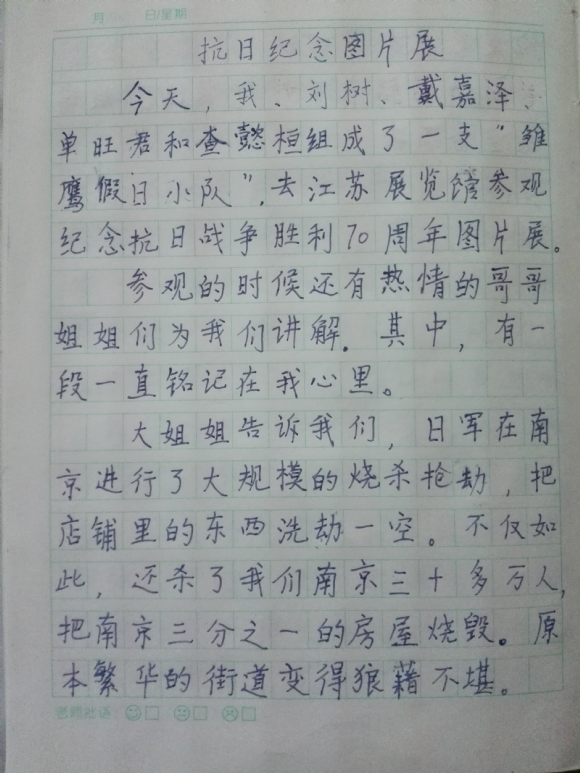 月 日/星期
抗日纪念图片展
今天，我、刘树、戴嘉泽、
单旺君和查懿桓组成了一支“雏
鹰假日小队”，去江苏展览馆参观
纪念抗日战争胜利70周年图片展。
参观的时候还有热情的哥哥
姐姐们为我们讲解．其中，有一
段一直铭记在我心里。
大姐姐告诉我们，日军在南
京进行了大规模的烧杀抢劫，把
店铺里的东西洗劫一空。不仅如
此，还杀了我们南京三十多万人，
把南京三分之一的房屋烧毁。原
本繁华的街道变得狼藉不堪。
老师批语